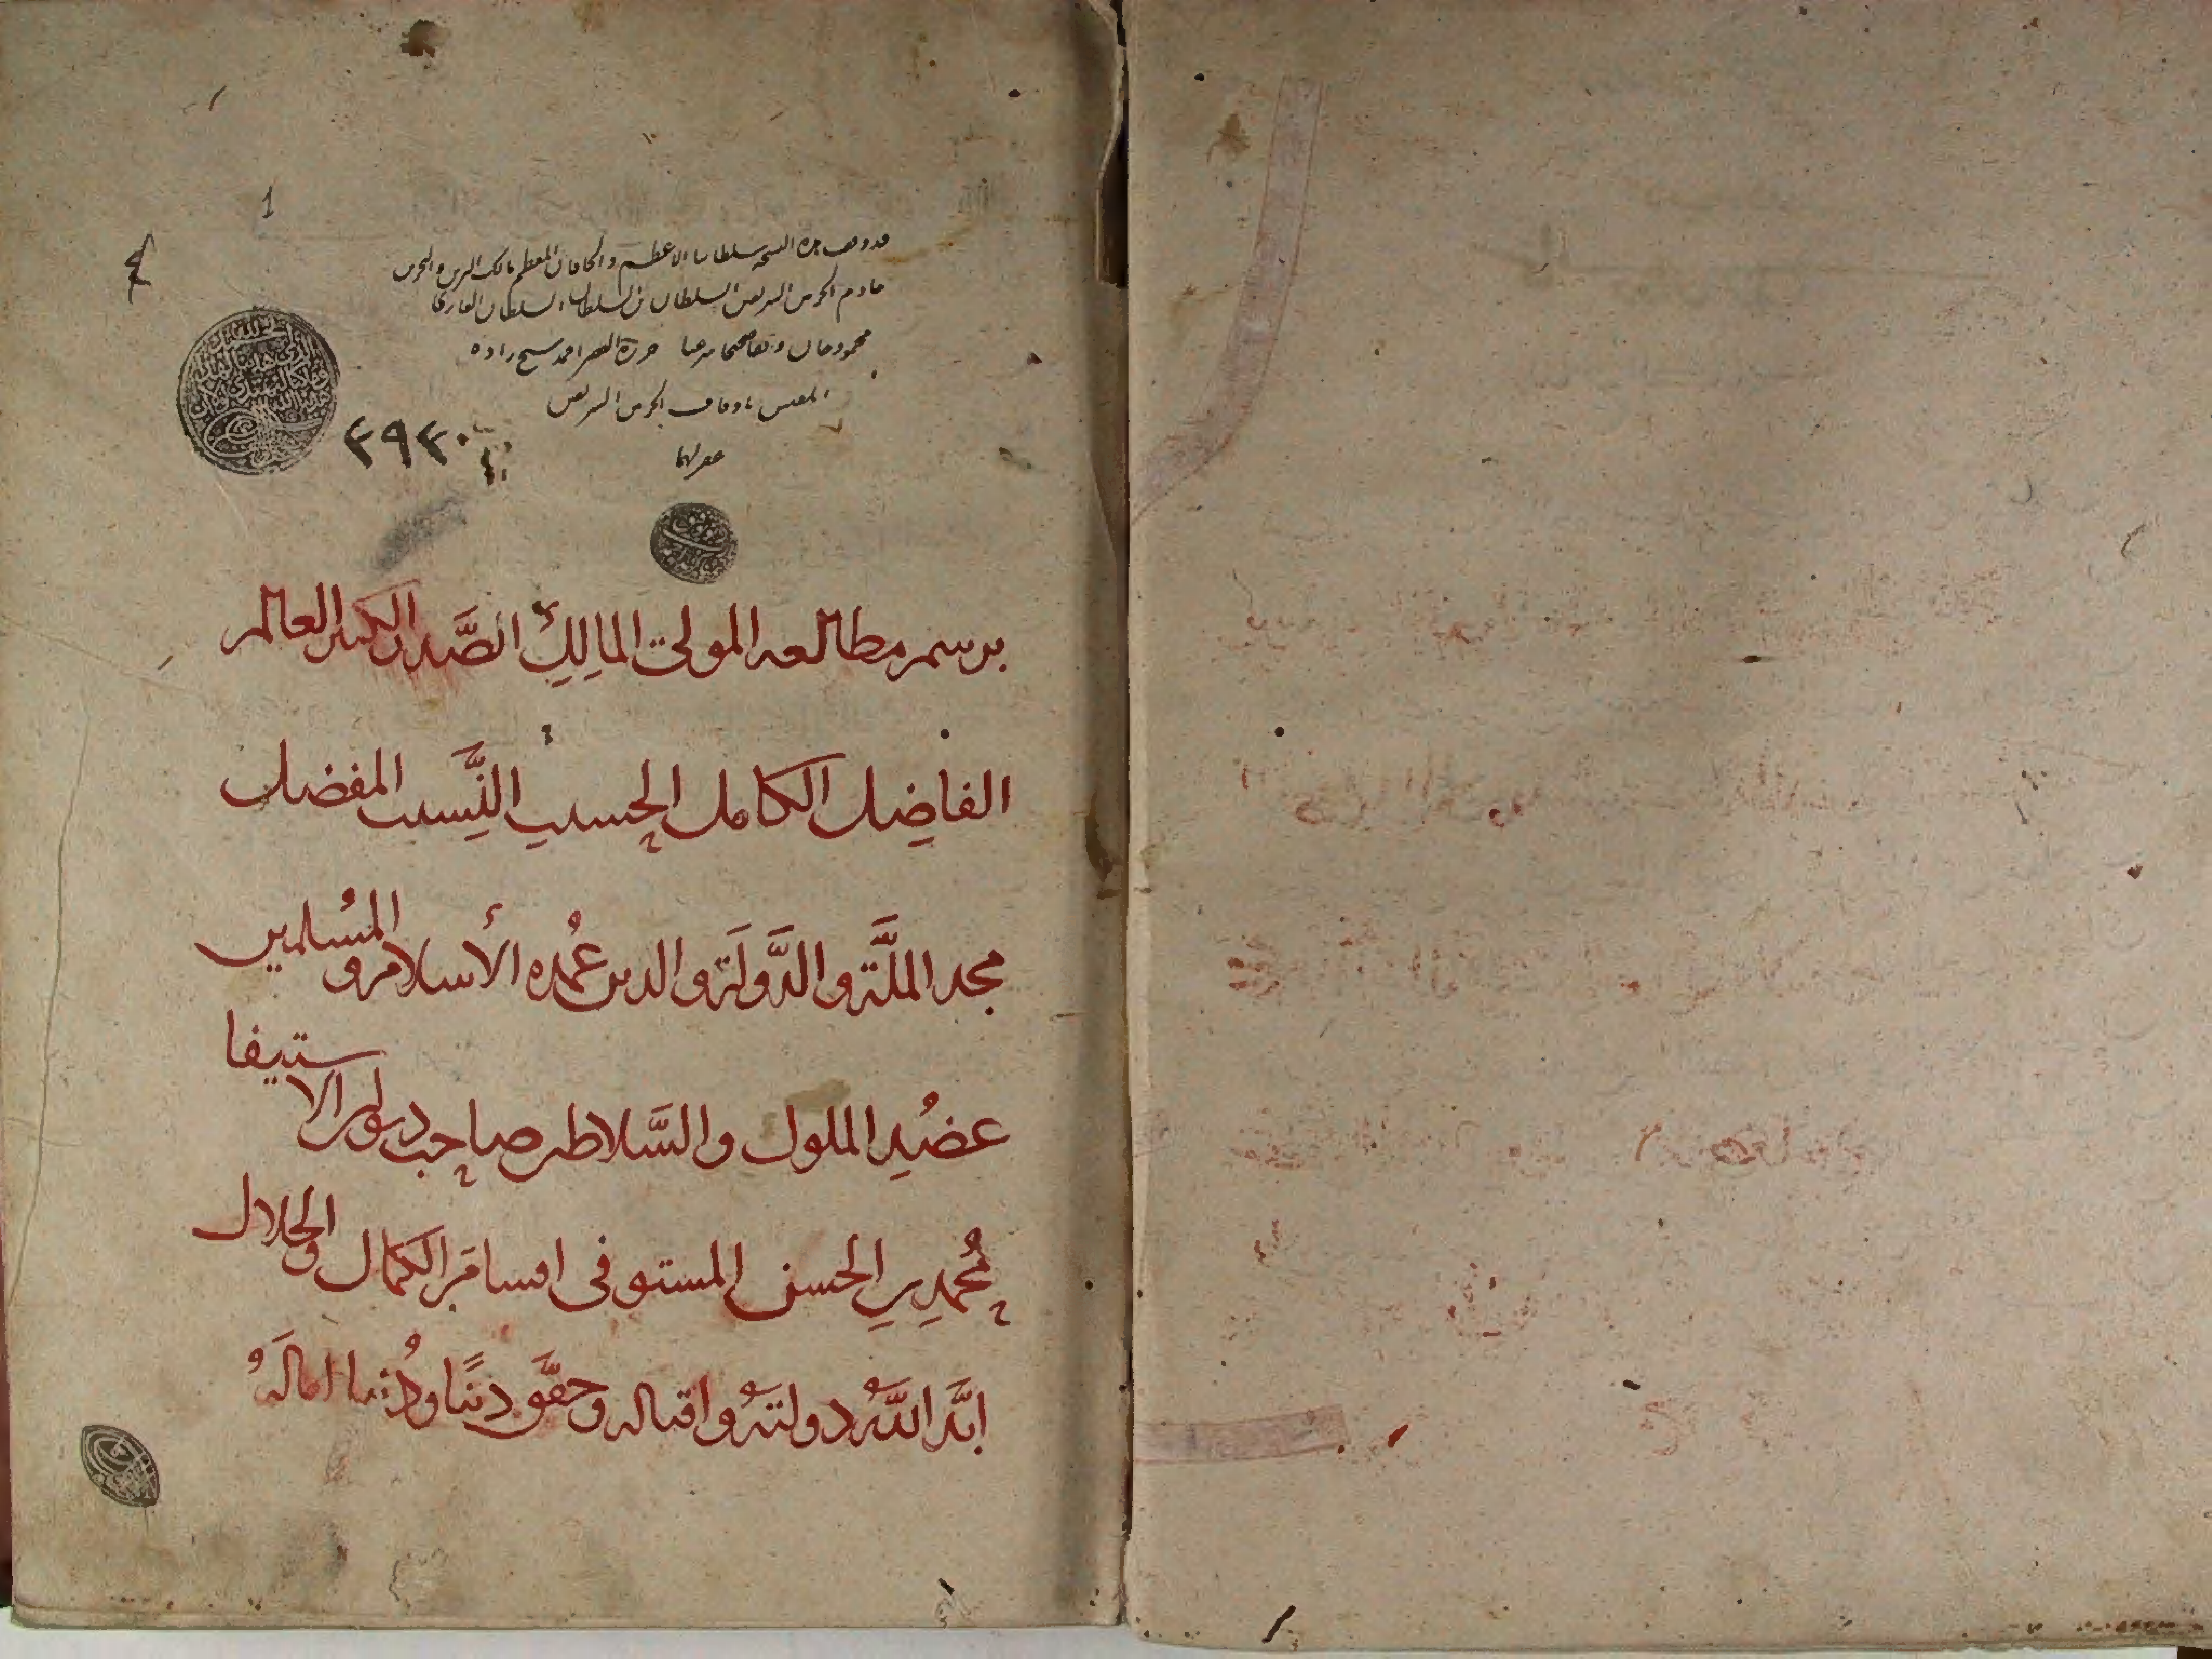 1
قد وقف هذه النسخة سلطاننا الاعظم والخاقان المعظم مالك البرين والبحرين
خادم الحرمين الشريفين السلطان بن السلطان السلطان الغازي
محمود خان وقفا صحيحا مرعيا حرره الفقير احمد شيخ زاده
المفتش باوقاف الحرمين الشريفين
غفر لهما
٣٩٣٠
برسم مطالعه المولى المالك الصَّدر الكبير العالم
الفاضِل الكامل الحسيب النَّسيب المفضل
مجد الملَّة والدَّولَة والدين عُمده الأسلام والمُسلمين
عضُد الملوك والسَّلاطين صاحب ديوان الاستيفا
مُحمد بن الحسن المستوفى اقسام الكمال والجلال
ابَّد اللَّه دولتهُ واقباله وحقَّق دينًا ودُنيا امالَهُ